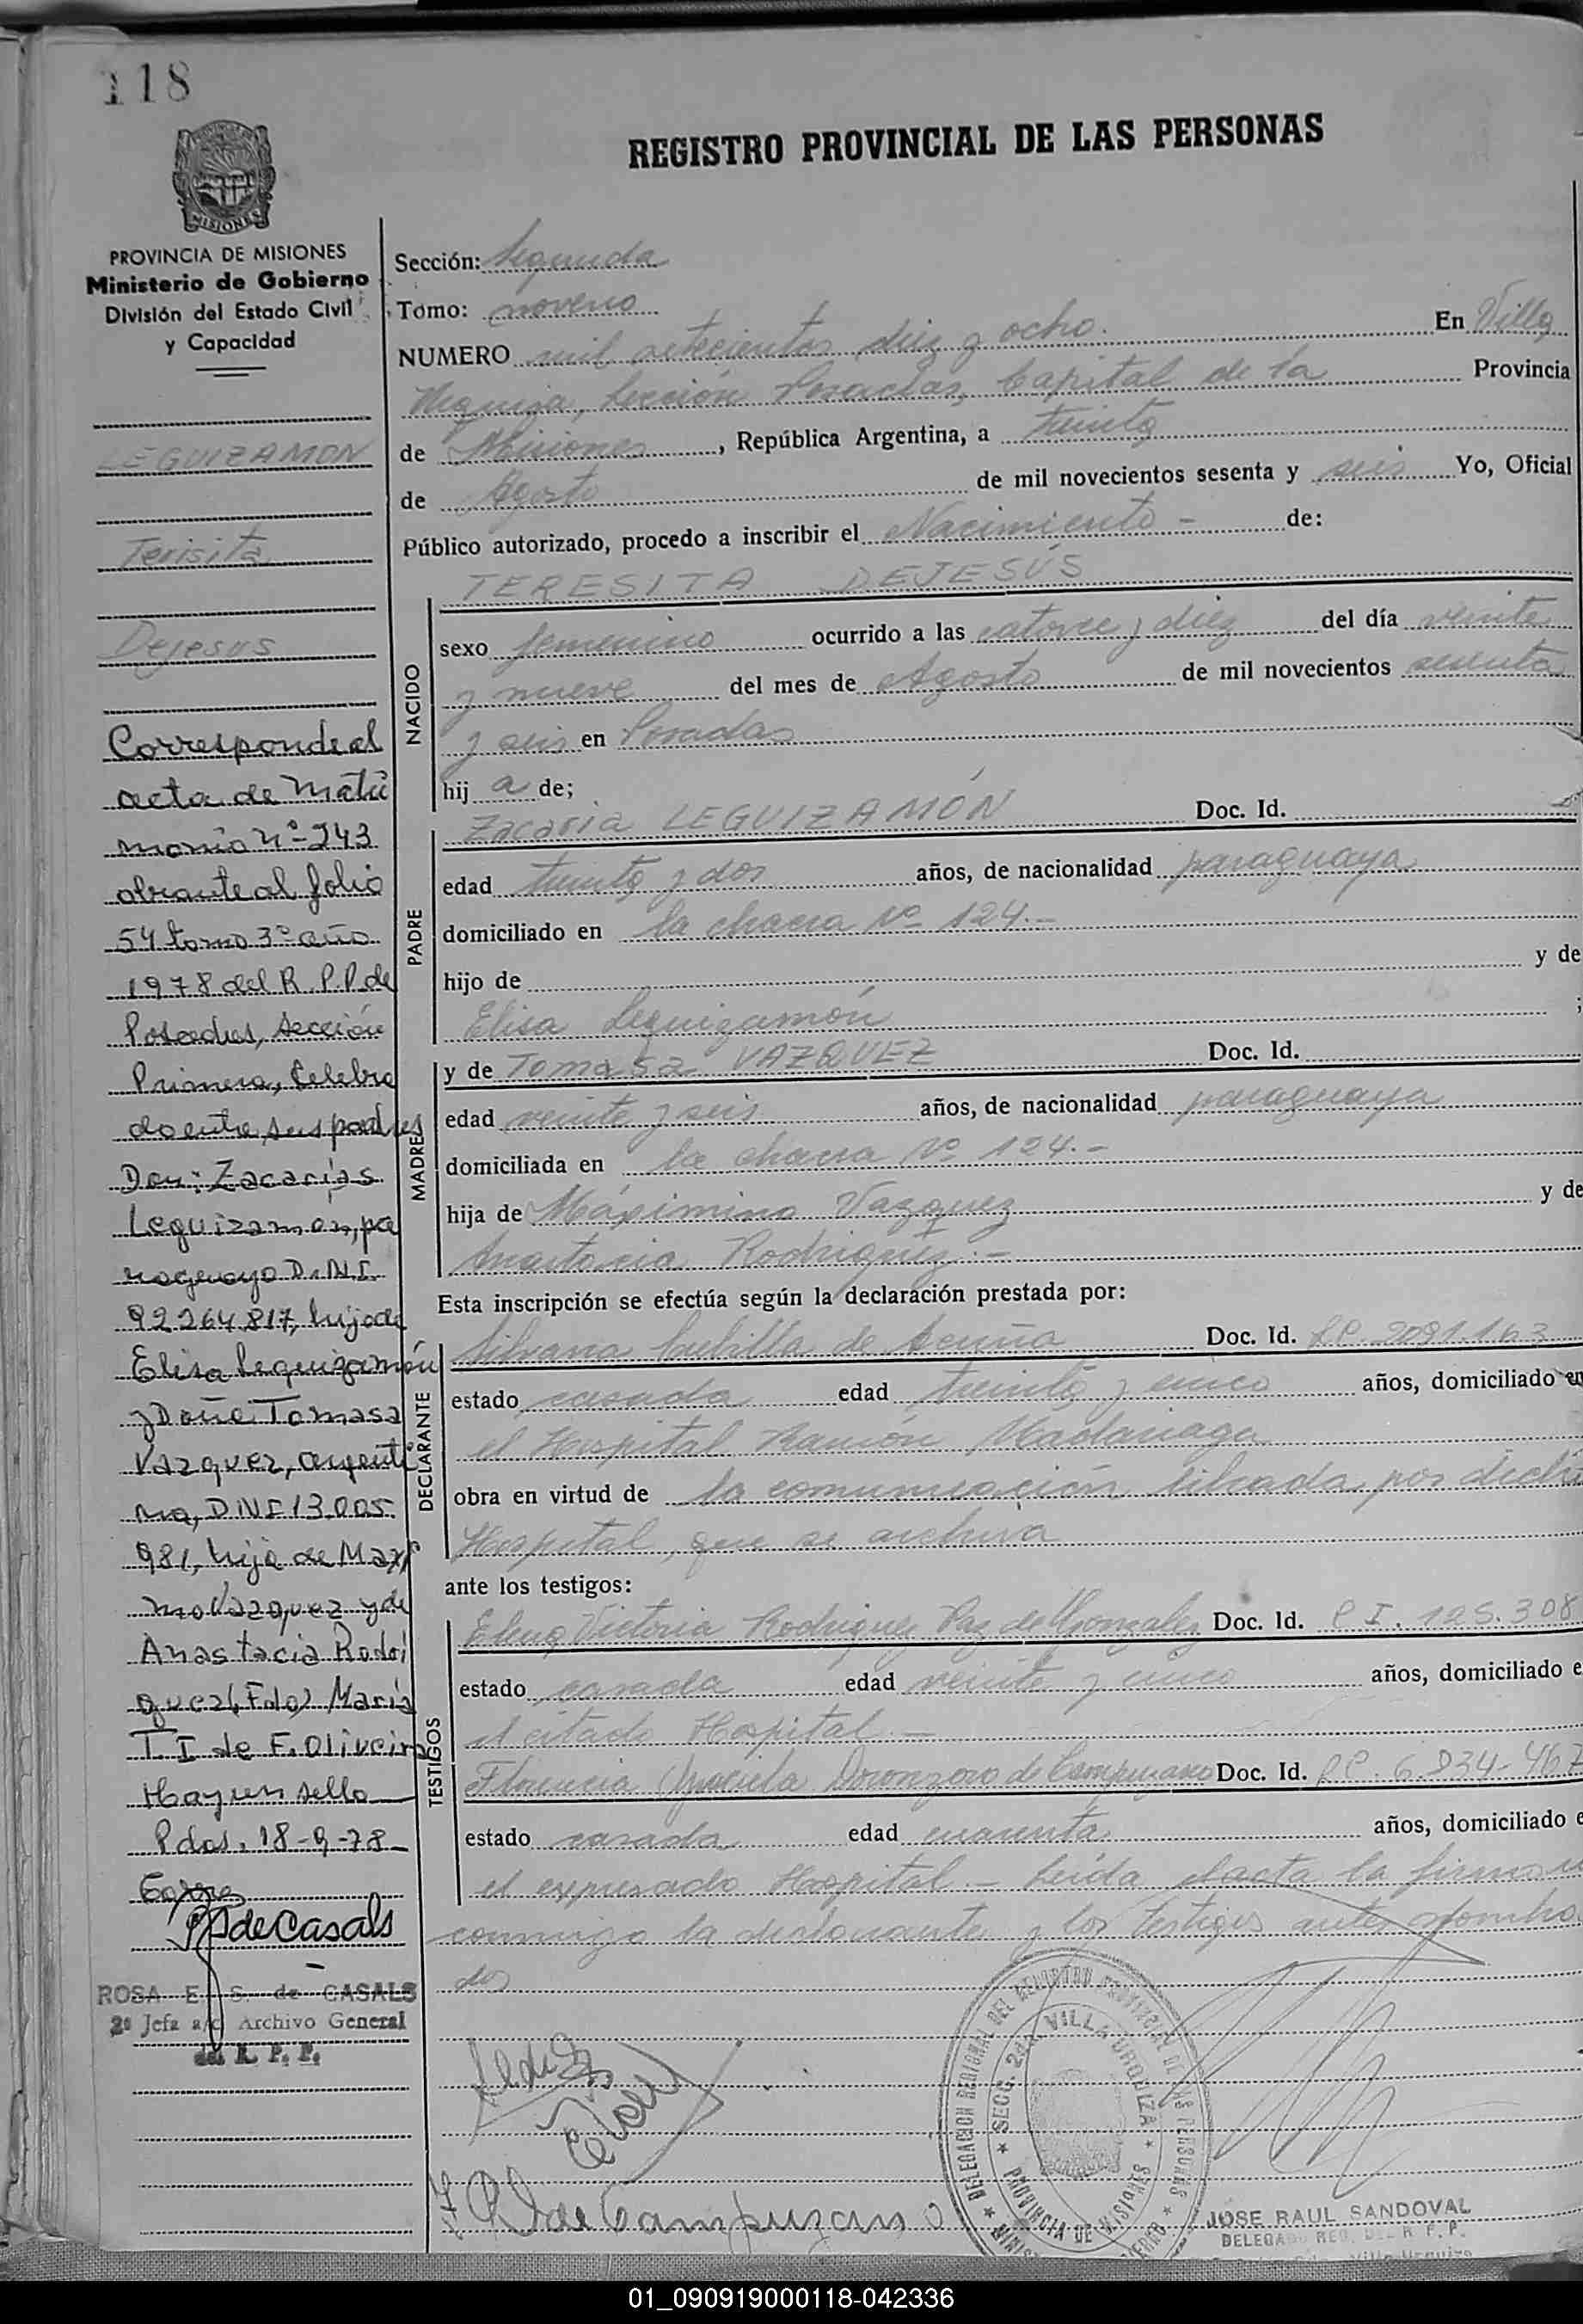 118
REGISTRO PROVINCIAL DE LAS PERSONAS
MISIONES
PROVINCIA DE MISIONES
Ministerio de Gobierno
División del Estado Civil
y Capacidad
LEGUIZAMON
Teresita
Dejesus
Corresponde al
acta de Matri
monio Nº 243
obrante al folio
54 tomo 3º año
1978 del R.P.P de
Posadas, Sección
Primera, Celebra
do entre sus padres
Don: Zacarías
Leguizamón, pa
raguayo D.N.I.
92264817, hijo de
Elisa Leguizamón
y Doña Tomasa
Vazquez, argenti
na, DNI 13.005.
981, hija de Maxi
mo Vazquez y de
Anastacia Rodri
guez (Fdo) María
T. I de F. Oliveira
Hay un sello
Pdas, 18-9-78
PS de Casals
ROSA E. S. de CASALS
2ª Jefa a/c Archivo General
del R. P. P.
Sección: Segunda
Tomo: noveno
NUMERO mil setecientos diez y ocho. En Villa
Urquiza, Sección Posadas, Capital de la Provincia
de Misiones, República Argentina, a treinta
de Agosto de mil novecientos sesenta y seis Yo, Oficial
Público autorizado, procedo a inscribir el Nacimiento - de:
TERESITA DEJESÚS
NACIDO
sexo femenino ocurrido a las catorce y diez del día veinte
y nueve del mes de Agosto de mil novecientos sesenta
y seis en Posadas
hij a de;
PADRE
Zacaria LEGUIZAMÓN Doc. Id.
edad treinta y dos años, de nacionalidad paraguaya
domiciliado en la chacra Nº 124.-
hijo de y de
Elisa Leguizamón ;
MADRE
y de Tomasa VAZQUEZ Doc. Id.
edad veinte y seis años, de nacionalidad paraguaya
domiciliada en la chacra Nº 124.-
hija de Máximino Vazquez y de
Anastacia Rodriguez.-
Esta inscripción se efectúa según la declaración prestada por:
DECLARANTE
Silvana Cubilla de Acuña Doc. Id. L.C. 2091163
estado casada edad treinta y cinco años, domiciliado en
el Hospital Ramón Madariaga
obra en virtud de la comunicación librada por dicho
Hospital, que se archiva
ante los testigos:
TESTIGOS
Elena Victoria Rodriguez Paz de Gonzalez Doc. Id. C I. 125.308
estado casada edad veinte y cinco años, domiciliado e
el citado Hospital.-
Florencia Graciela Doronzoro de Campuzano Doc. Id. L.C. 6.834-467
estado casada edad cuarenta años, domiciliado e
el expresado Hospital.- Leída el acta la firman
conmigo la declarante y los testigos antes nombra
dos
de Campuzano
DELEGACION REGIONAL DEL REGISTRO PROVINCIAL DE LAS PERSONAS
SECC. 2da. VILLA URQUIZA
PROVINCIA DE MISIONES
JOSE RAUL SANDOVAL
DELEGADO REG. DEL R. P. P.
Villa Urquiza
01_090919000118-042336